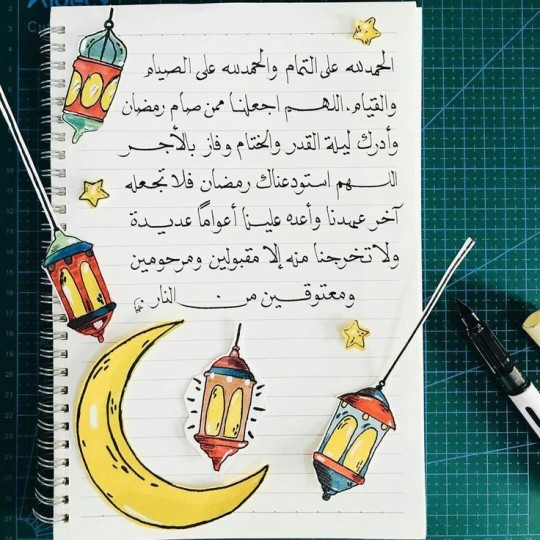 الحمدلله على التمام والحمدلله على الصيام
والقيام. اللهم اجعلنا ممن صام رمضان
وأدرك ليلة القدر والختام وفاز بالأجر
اللهم استودعناك رمضان فلا تجعله
آخر عهدنا وأعده علينا أعوامًا عديدة
ولا تخرجنا منه إلا مقبولين ومرحومين
ومعتوقين من النار